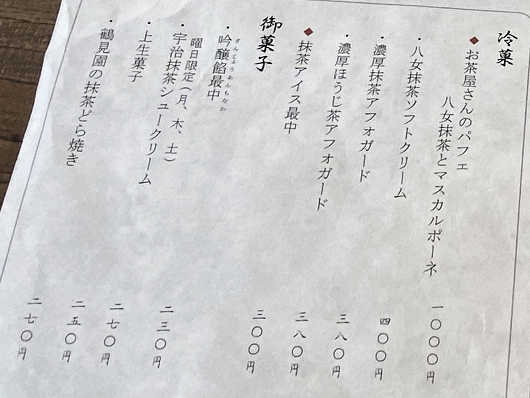 冷菓
◆お茶屋さんのパフェ
八女抹茶とマスカルポーネ 一〇〇〇円
・八女抹茶ソフトクリーム 四〇〇円
・濃厚抹茶アフォガード 三八〇円
・濃厚ほうじ茶アフォガード 三八〇円
◆抹茶アイス最中 三〇〇円
御菓子
ぎんじょうあんもなか
・吟醸餡最中 二三〇円
曜日限定(月、木、土)
・宇治抹茶シュークリーム 二七〇円
・上生菓子 二五〇円
・鶴見園の抹茶どら焼き 二七〇円